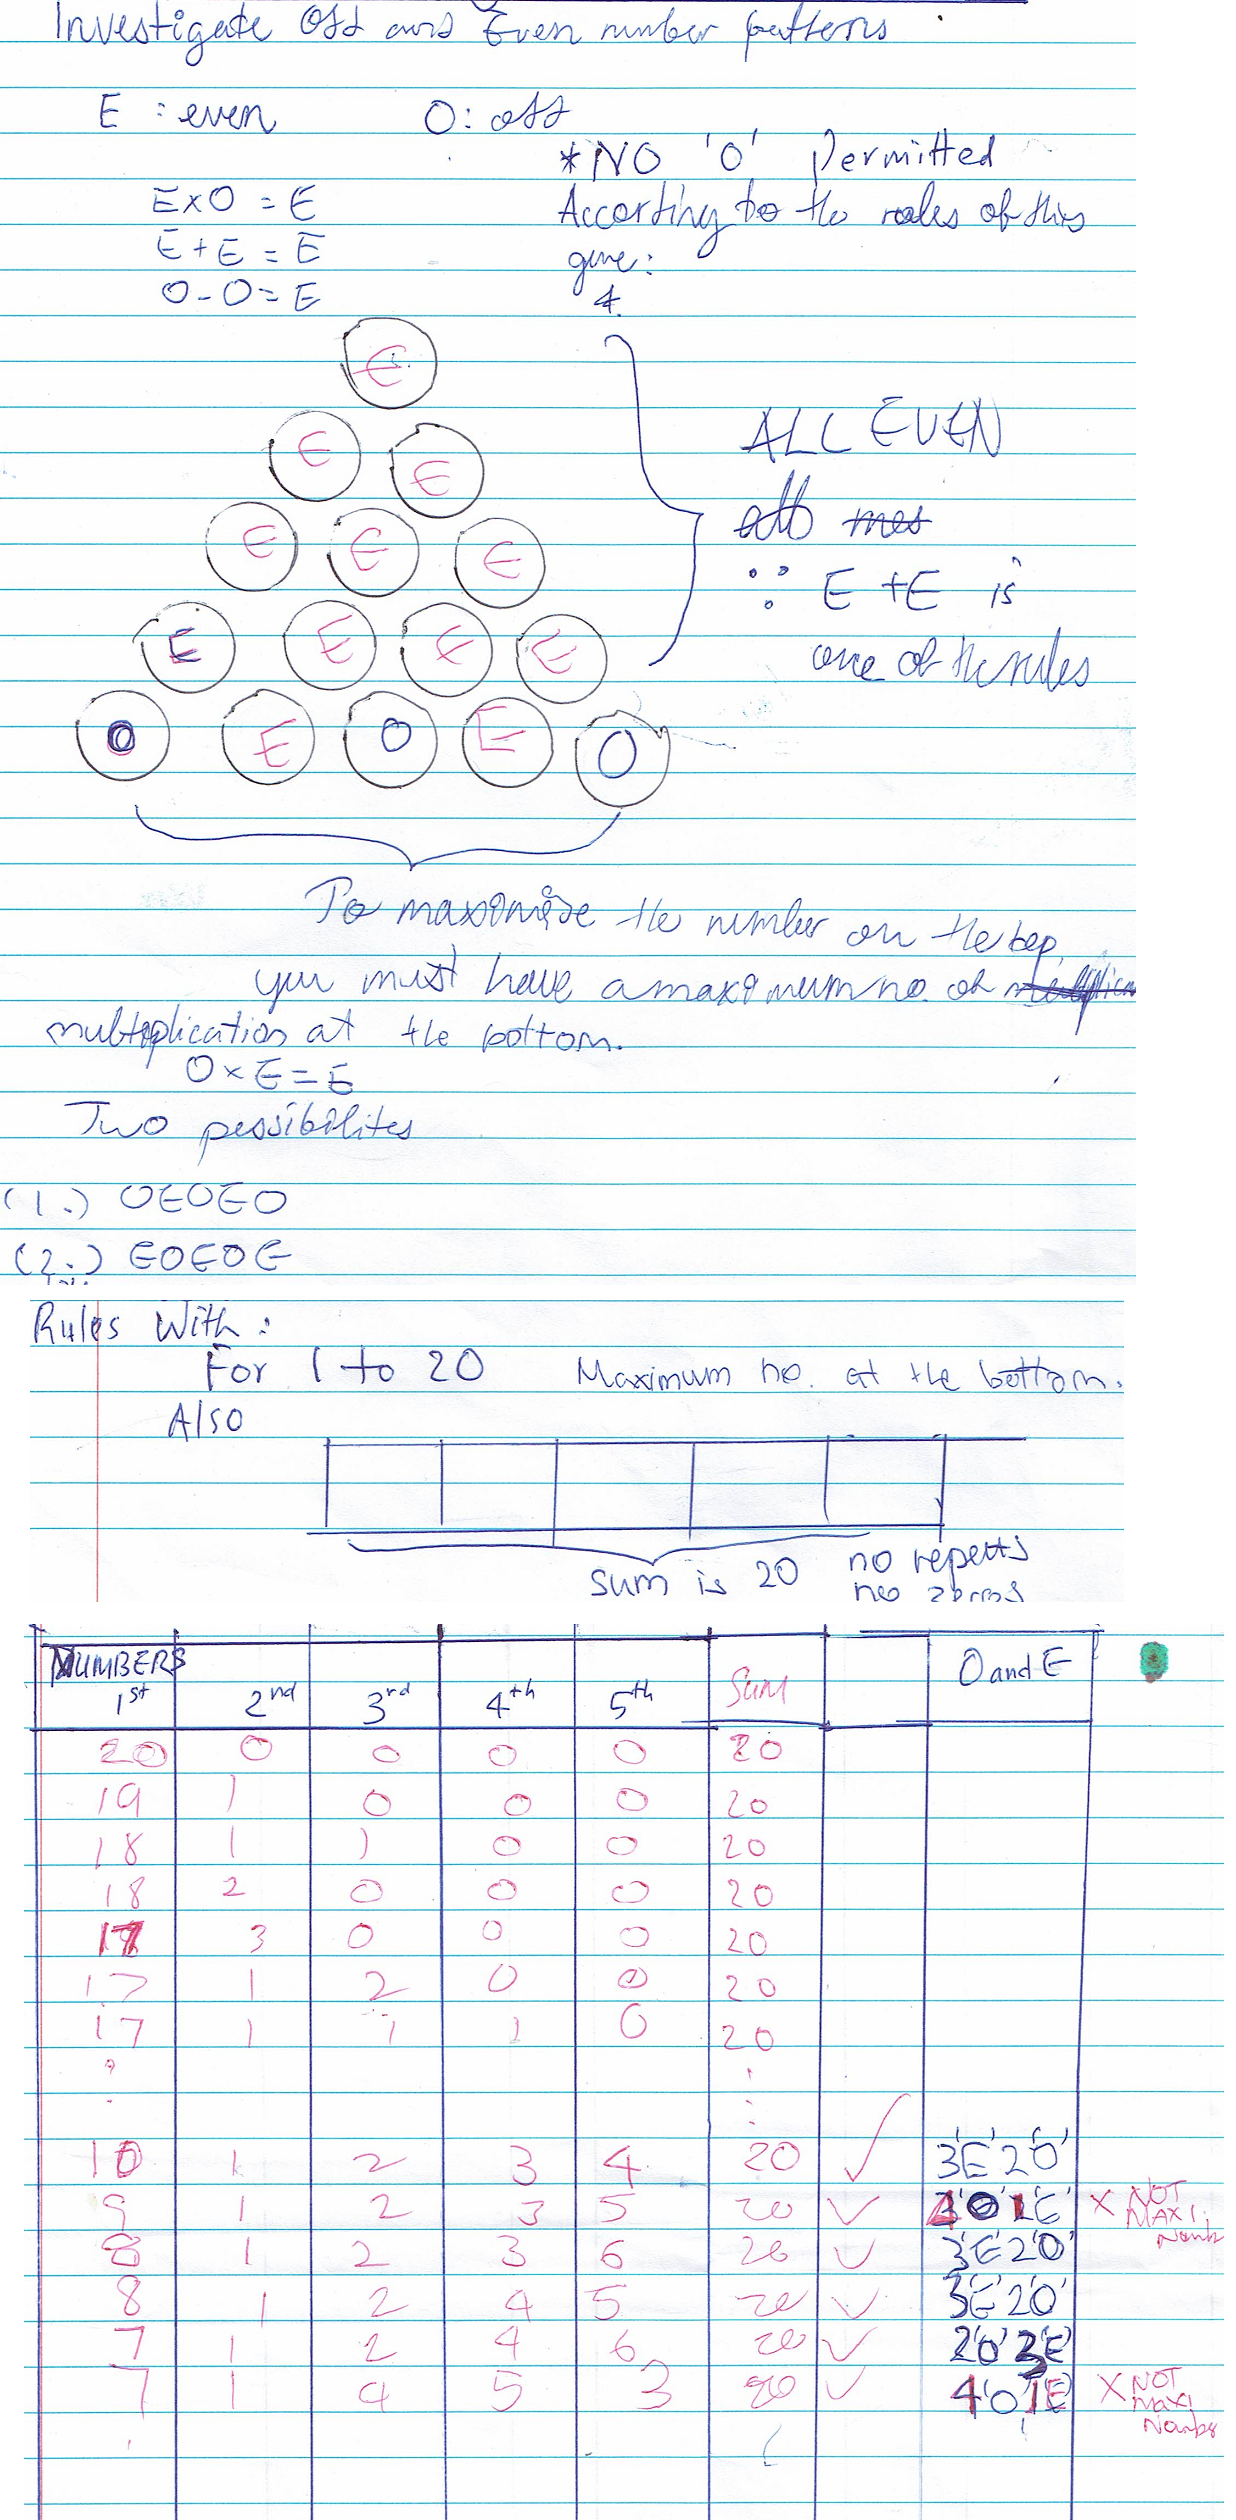 Investigate Odd and Even number patterns
E : even O: odd
*NO '0' Permitted
E x O = E According to the rules of this
E + E = E game:
O - O = E 4.
E
E E
ALL EVEN
E E E
∵ E + E is
E E E E
one of the rules
O E O E O
To maximise the number on the top
you must have a maximum no. of
multiplication at the bottom.
O x E = E
Two possibilites
(1.) OEOEO
(2.) EOEOE
Rules With:
For 1 to 20 Maximum no. at the bottom.
Also
sum is 20 no repeats
no zeros
NUMBERS
1st 2nd 3rd 4th 5th Sum O and E
20 0 0 0 0 20
19 1 0 0 0 20
18 1 1 0 0 20
18 2 0 0 0 20
17 3 0 0 0 20
17 1 2 0 0 20
17 1 1 1 0 20
10 1 2 3 4 20 ✓ 3'E'2'O'
9 1 2 3 5 20 ✓ 4'O'1'E' X NOT MAXI. Numb
8 1 2 3 6 20 ✓ 3'E'2'O'
8 1 2 4 5 20 ✓ 3'E'2'O'
7 1 2 4 6 20 ✓ 2'O'3'E'
7 1 4 5 3 20 ✓ 4'O'1E' X NOT Maxi Number